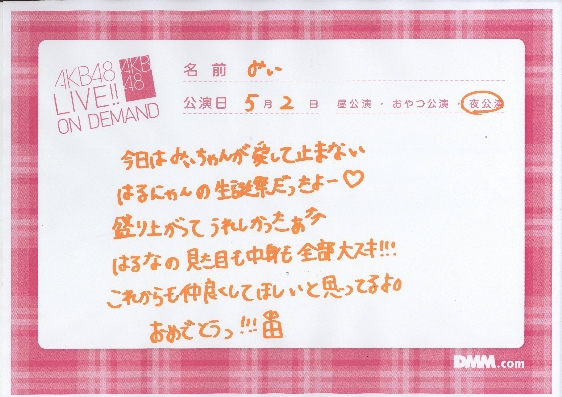 AKB48
LIVE!!
ON DEMAND
AKB
48
名前 みい
公演日 5月2日 昼公演・おやつ公演・夜公演
今日はみぃちゃんが愛して止まない
はるにゃんの生誕祭だったよー♡
盛り上がってうれしかったぁ
はるなの見た目も中身も全部大スキ!!!
これからも仲良くしてほしいと思ってるよ。
おめでとうっ!!!
DMM.com